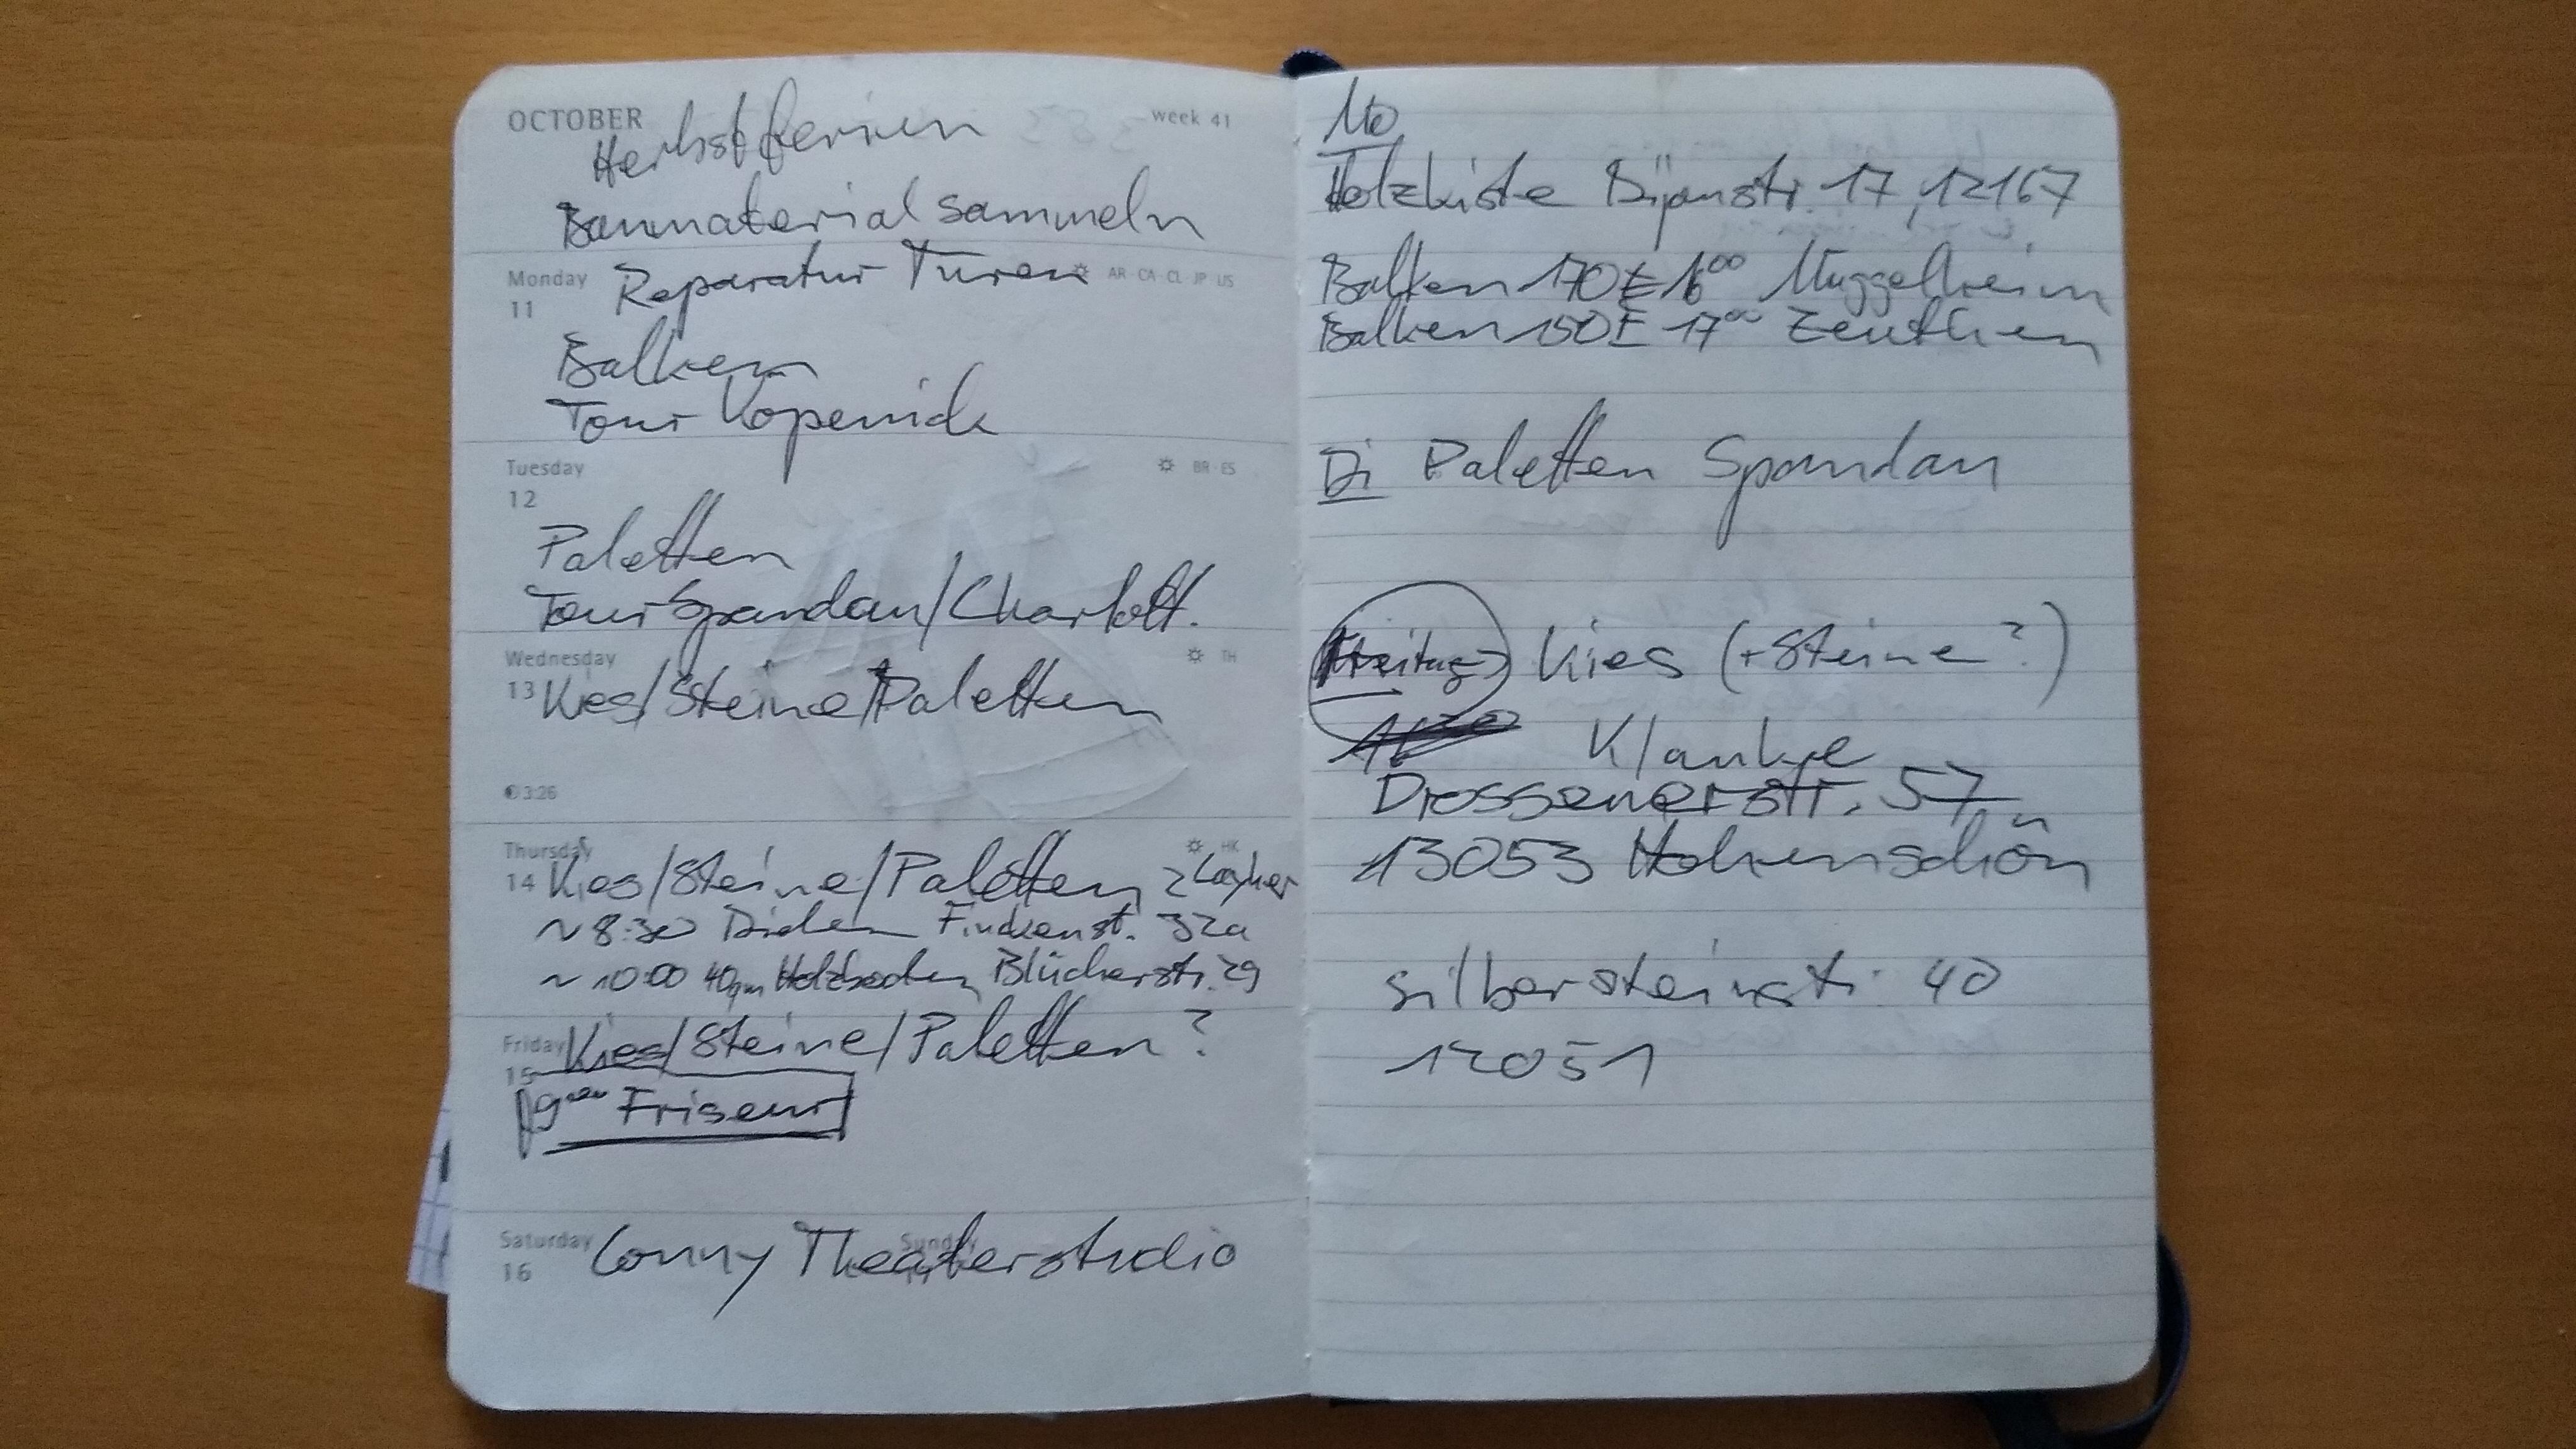 OCTOBER
week 41
Herbstferien
Baumaterial sammeln
Monday
11
Reparatur Türen
AR · CA · CL · JP · US
Balken
Tour Köpenick
Tuesday
12
BR · ES
Paletten
Tour Spandau/Charlott.
Wednesday
13
TH
Kies/Steine/Paletten
3:26
Thursday
14
HK
Kies/Steine/Paletten
~ 8:30 Dielen Finckenst. 32a
~ 10:00 40qm Holzboden Blücherstr. 29
Friday
15
Kies/Steine/Paletten?
9°° Friseur
Saturday
16
Sunday
Conny Theaterstudio
Mo
Holzkiste 17, 12167
Balken 170€ 16°° Müggelheim
Balken 150€ 17°° Zeuthen
Di Paletten Spandau
Freitag Kies (+Steine?)
Klankje
Drossenerstr. 57
13053 Hohenschön
Silbersteinstr. 40
12051